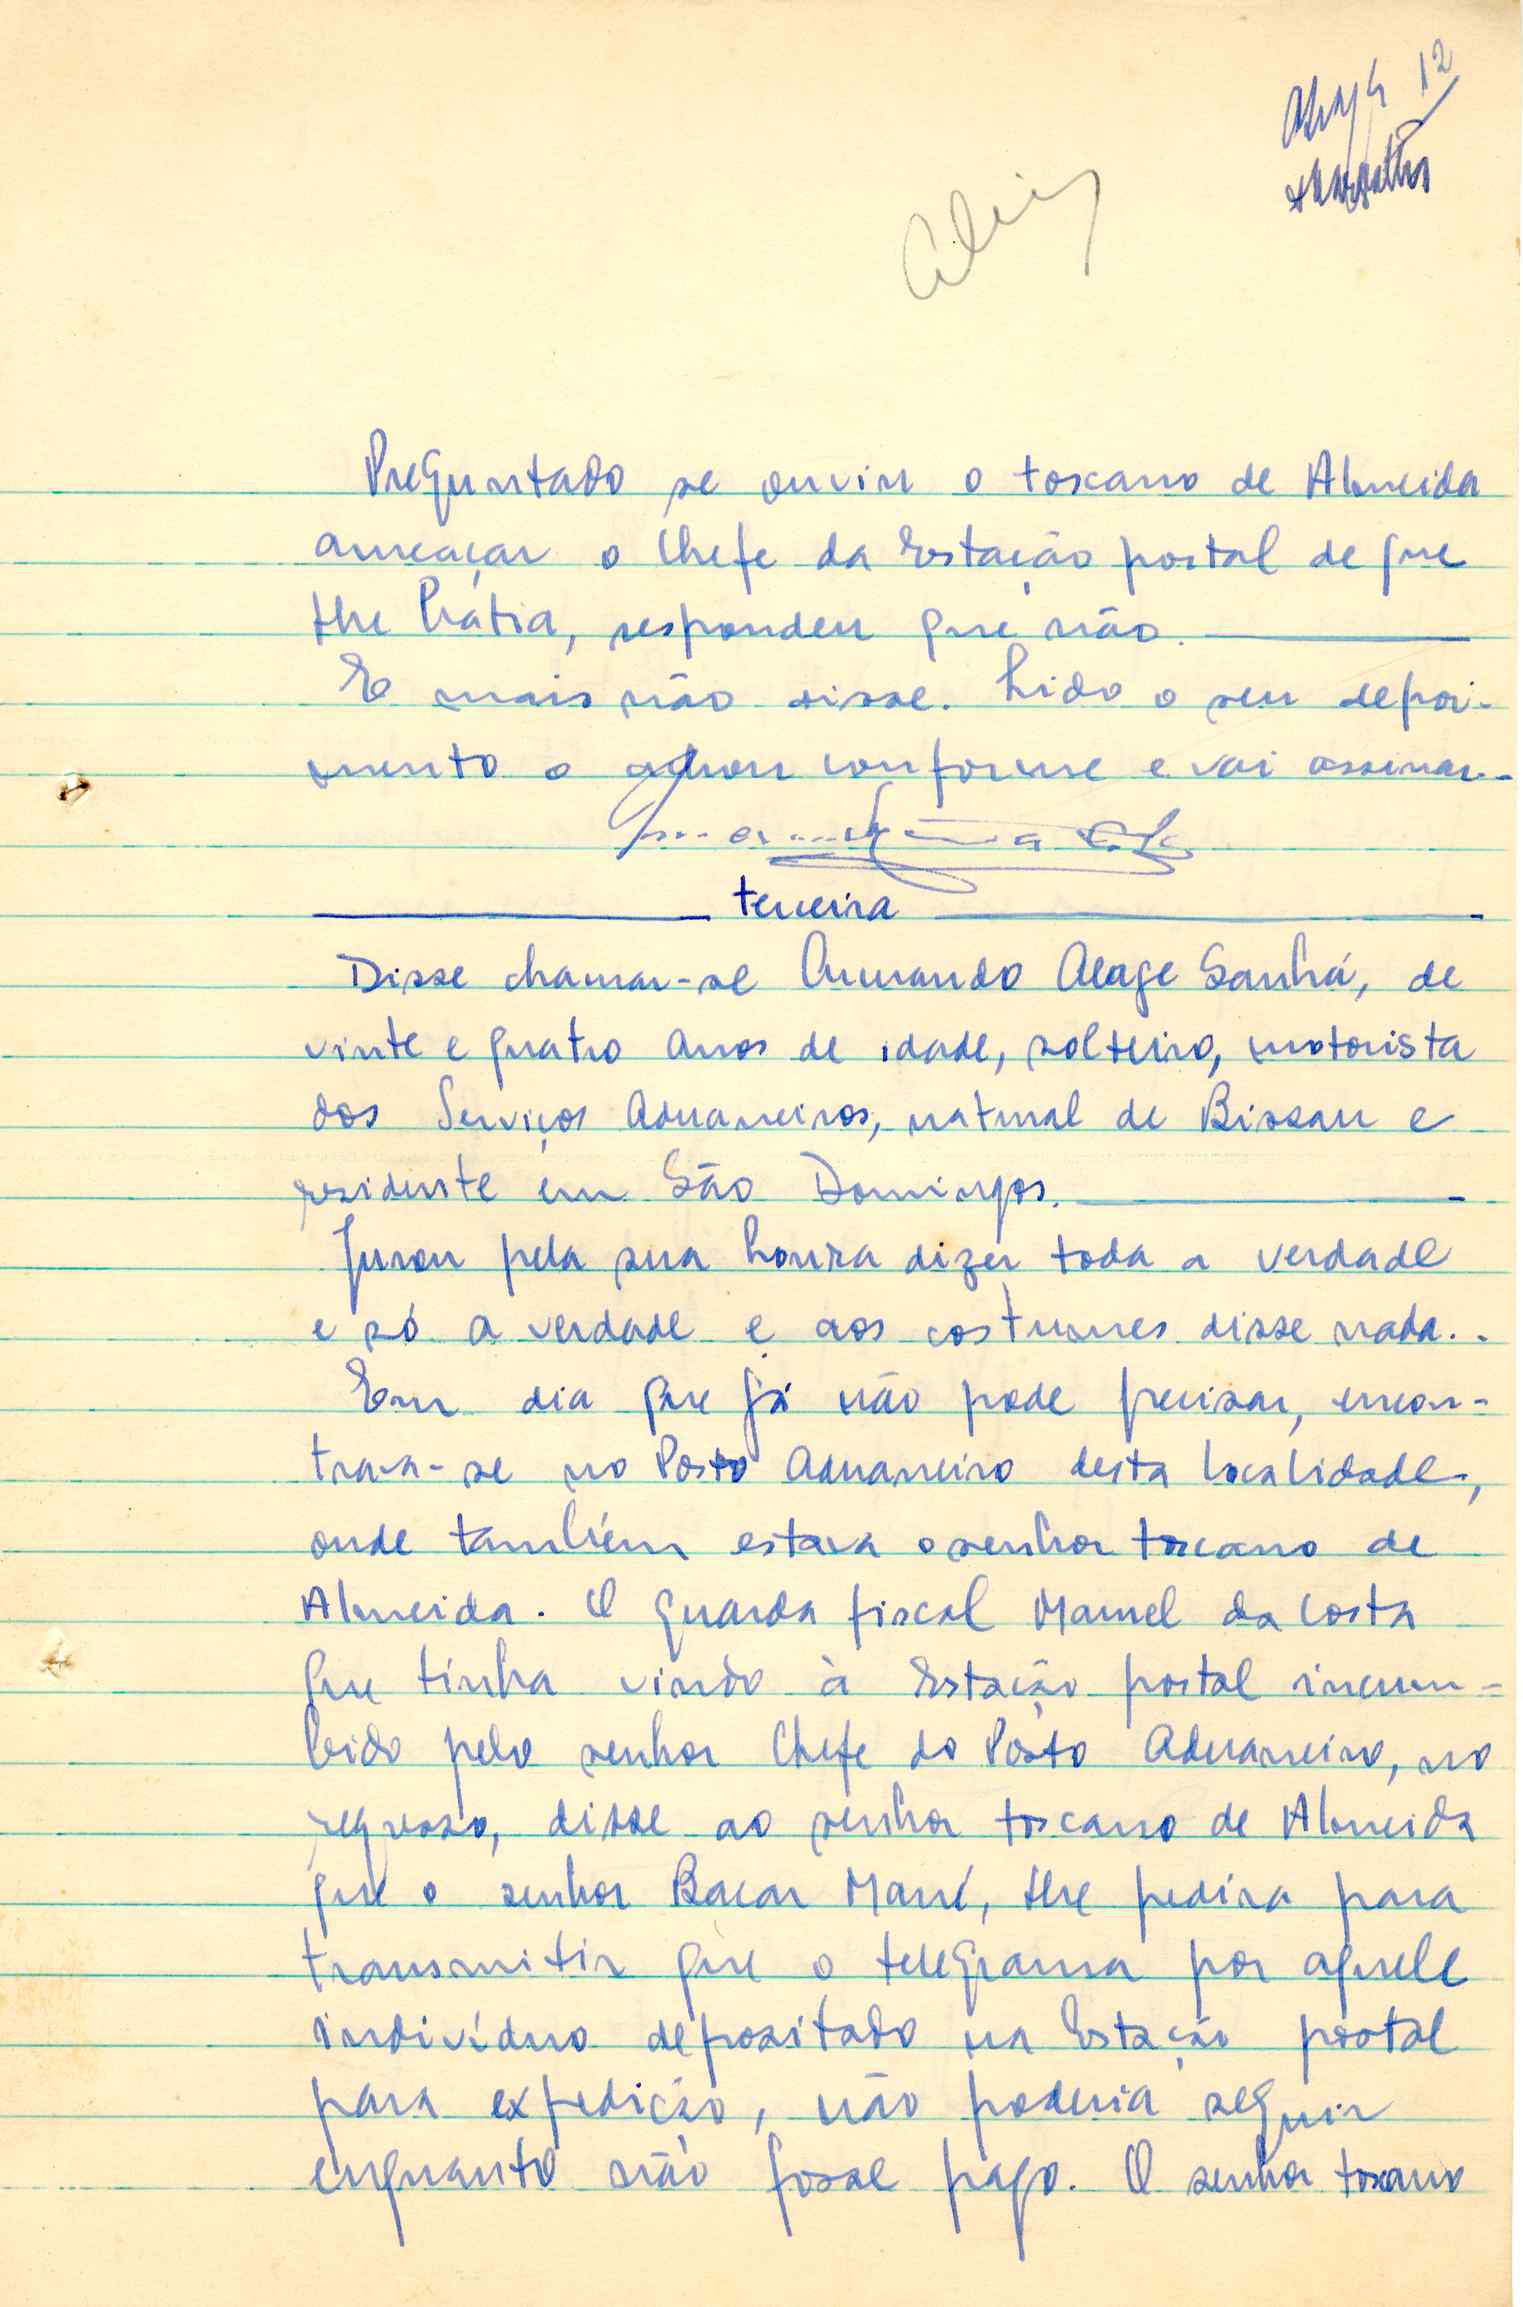 12
Preguntado se ouviu o toscano de Almeida
ameaçar o Chefe da Estação postal de que
lhe batia, respondeu que não.
E mais não disse. Lido o seu depoi-
mento o achou conforme e vai assinar.-
terceira
Disse chamar-se Armando Alage Sanhá, de
vinte e quatro anos de idade, solteiro, motorista
dos Serviços Aduaneiros, natural de Bissau e
residente em São Domingos.
Jurou pela sua honra dizer toda a verdade
e só a verdade e aos costumes disse nada..
Em dia que já não pode precisar, encon-
trava-se no Posto Aduaneiro desta localidade,
onde também estava o senhor toscano de
Almeida. O guarda fiscal Manuel da Costa
que tinha vindo à Estação postal incum-
bido pelo senhor Chefe do Pôsto Aduaneiro, no
regresso, disse ao senhor toscano de Almeida
que o senhor Bacar Mané, lhe pedira para
transmitir que o telegrama por aquele
indivíduo depositado na Estação postal
para expedição, não poderia seguir
enquanto não fosse pago. O senhor toscano